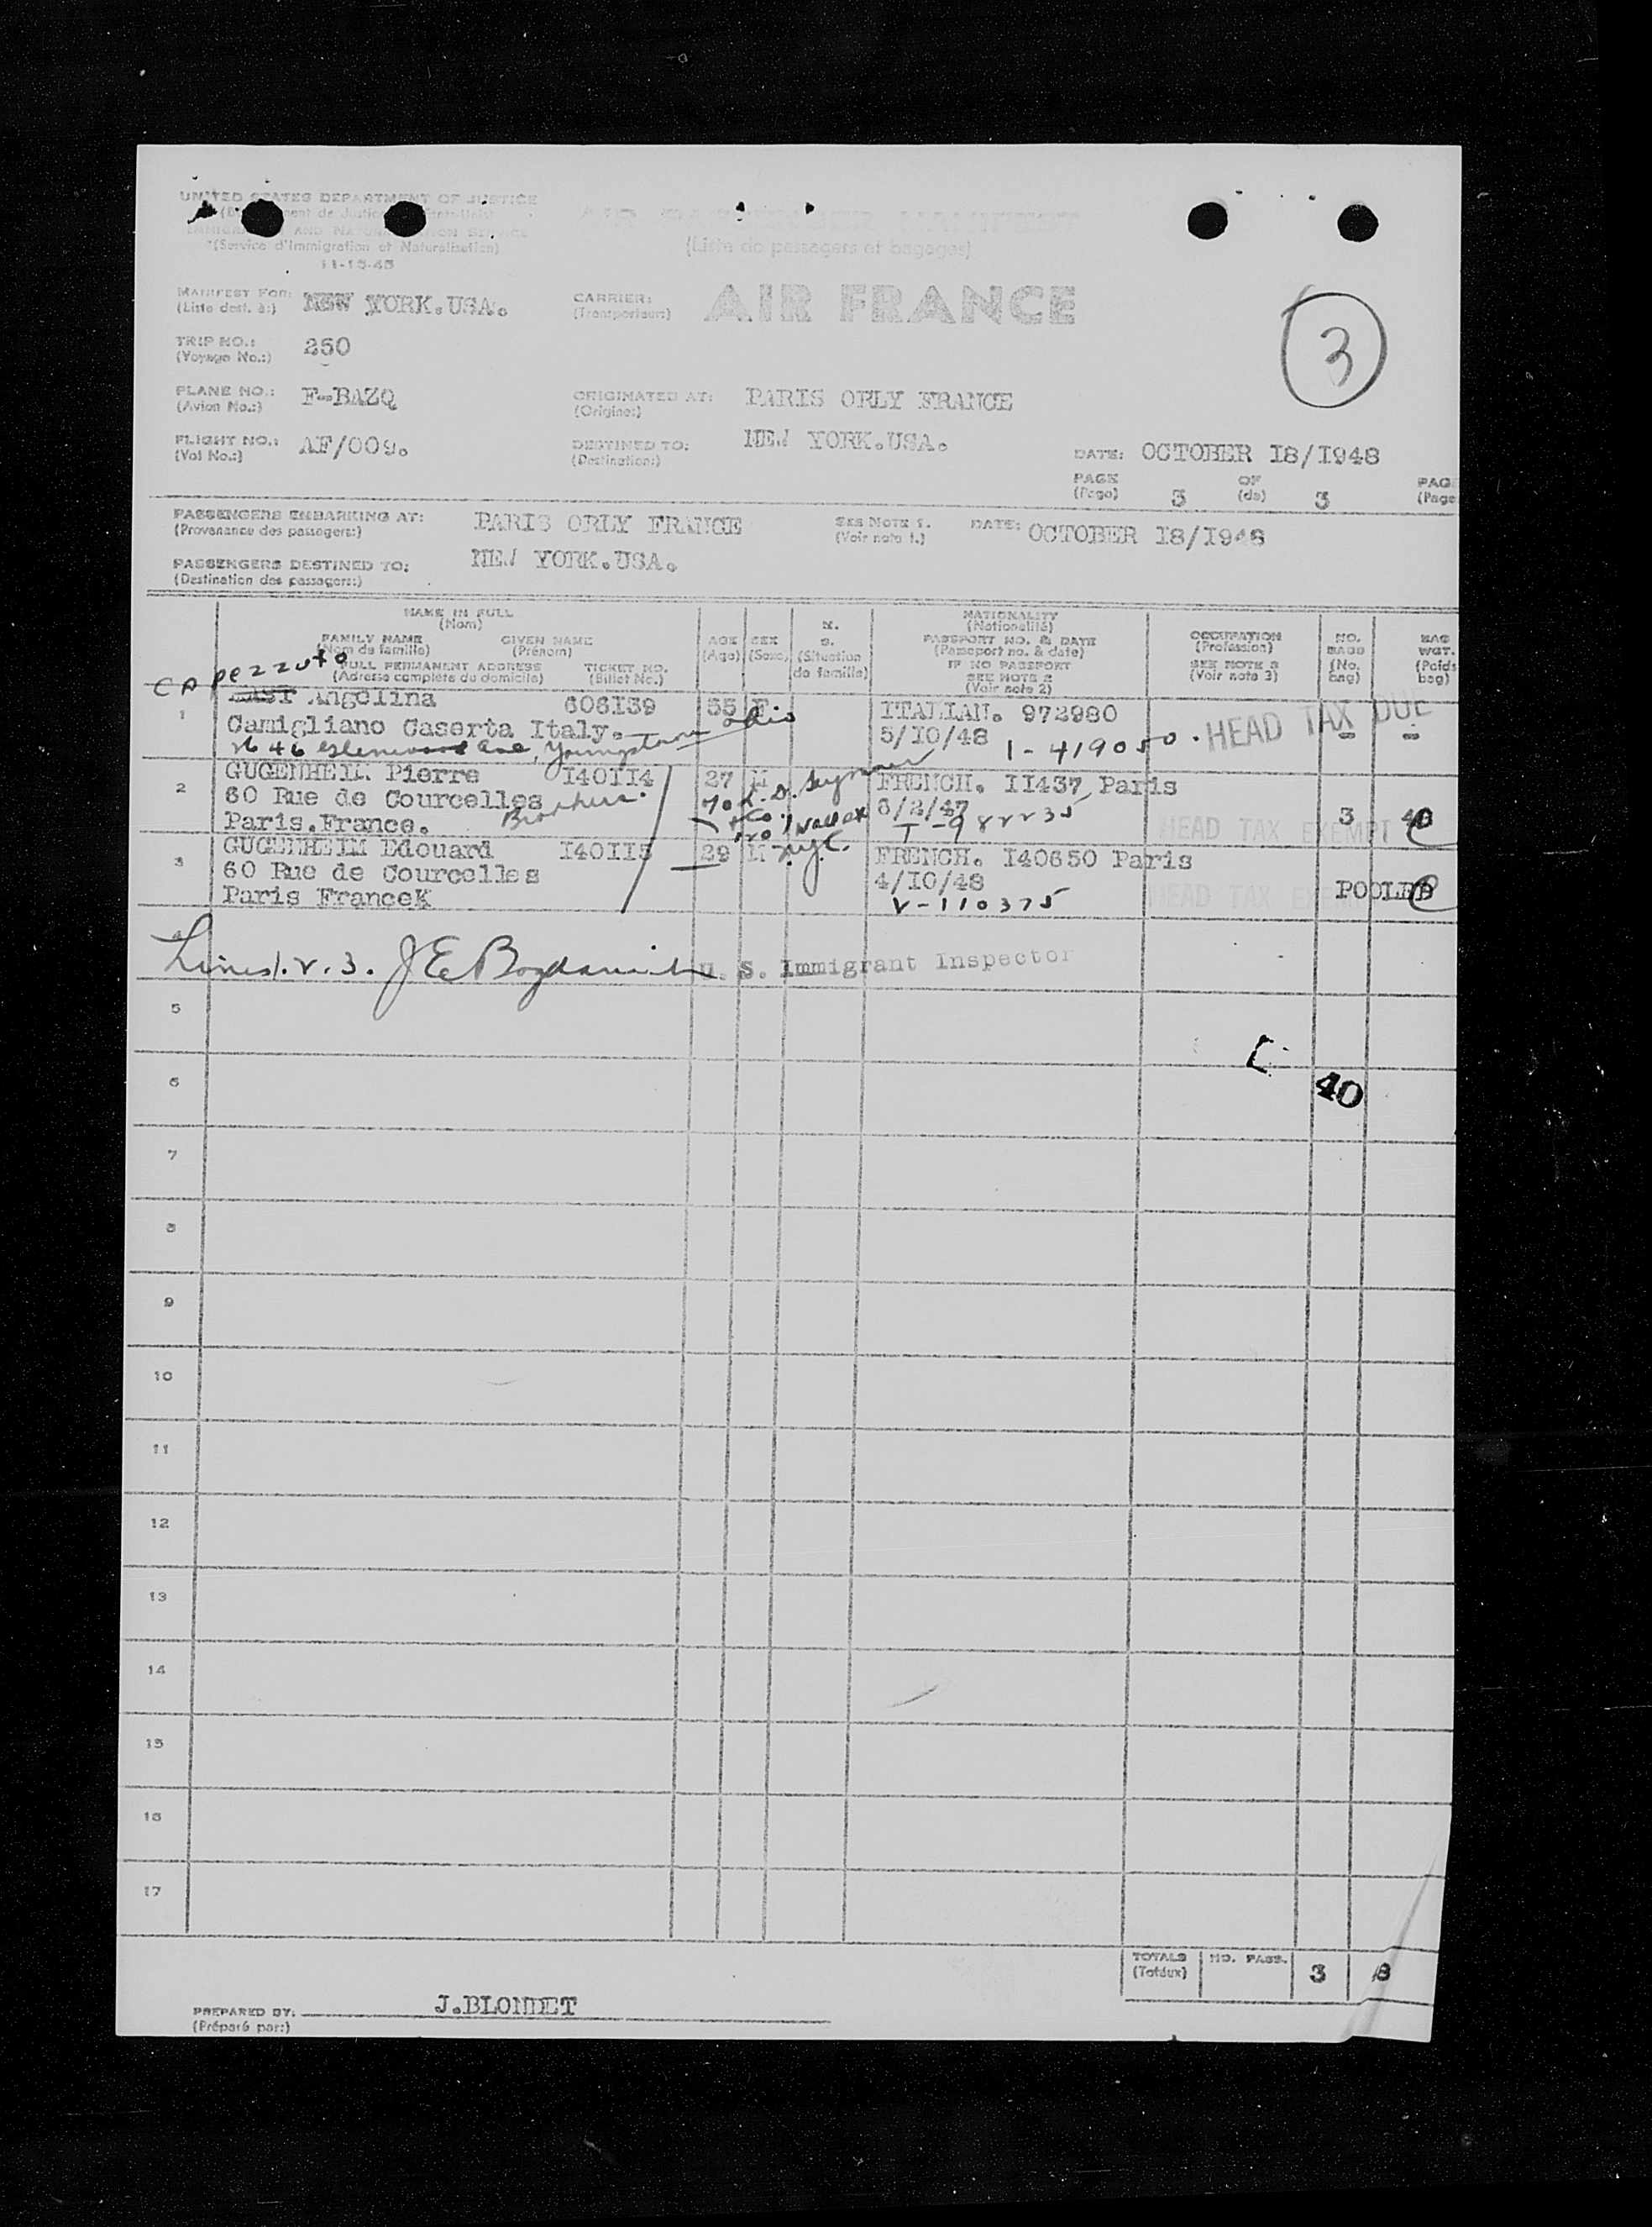 UNITED STATES DEPARTMENT OF JUSTICE
IMMIGRATION AND NATURALIZATION SERVICE
(Service d'Immigration et Naturalisation)
11-15-45
(Liste de passagers et bagages)
MANIFEST FOR: NEW YORK.USA.
(Liste dest. à:)
CARRIER: AIR FRANCE
(Transporteur:)
3
TRIP NO.: 250
(Voyage No.:)
PLANE NO.: F-BAZQ
(Avion No.:)
ORIGINATED AT: PARIS ORLY FRANCE
(Origine:)
FLIGHT NO.: AF/009.
(Vol No.:)
DESTINED TO: NEW YORK.USA.
(Destination:)
DATE: OCTOBER I8/I948
PAGE 3 OF 3 PAG
(Page) (de) (Page
PASSENGERS EMBARKING AT: PARIS ORLY FRANCE
(Provenance des passagers:)
SEE NOTE 1. DATE: OCTOBER I8/I948
(Voir note 1.)
PASSENGERS DESTINED TO: NEW YORK.USA.
(Destination des passagers:)
NAME IN FULL
(Nom)
FAMILY NAME GIVEN NAME
(Nom de famille) (Prénom)
FULL PERMANENT ADDRESS TICKET NO.
(Adresse complète du domicile) (Billet No.)
AGE SEX
(Age) (Sexe)
M.
S.
(Situation
de famille)
NATIONALITY
(Nationalité)
PASSPORT NO. & DATE
(Passeport no. & date)
IF NO PASSPORT
SEE NOTE 2
(Voir note 2)
OCCUPATION
(Profession)
SEE NOTE 3
(Voir note 3)
NO.
BAGG
(No.
bag)
BAG
WGT.
(Poids
bag)
Capezzuto
1 Angelina 606I39 55 F ITALIAN. 972980
Camigliano Caserta Italy. 5/IO/48 1-419050. HEAD TAX DUE
2646 Glenwood Ave, Youngstown Ohio
2 GUGENHEIM Pierre I40II4 27 M FRENCH. II437 Paris
60 Rue de Courcelles Brothers. 6/2/47 3 40
Paris.France. HEAD TAX EXEMPT
3 GUGENHEIM Edouard I40II5 29 M N.Y.C. FRENCH. I40650 Paris
60 Rue de Courcelles 4/IO/48 POOLED
Paris FranceK V-110375 HEAD TAX EXEMPT
4
Lines 1.2.3. U. S. Immigrant Inspector
5
6 40
7
8
9
10
11
12
13
14
15
16
17
TOTALS NO. PASS. 3
(Totaux)
PREPARED BY: J.BLONDET
(Préparé par:)